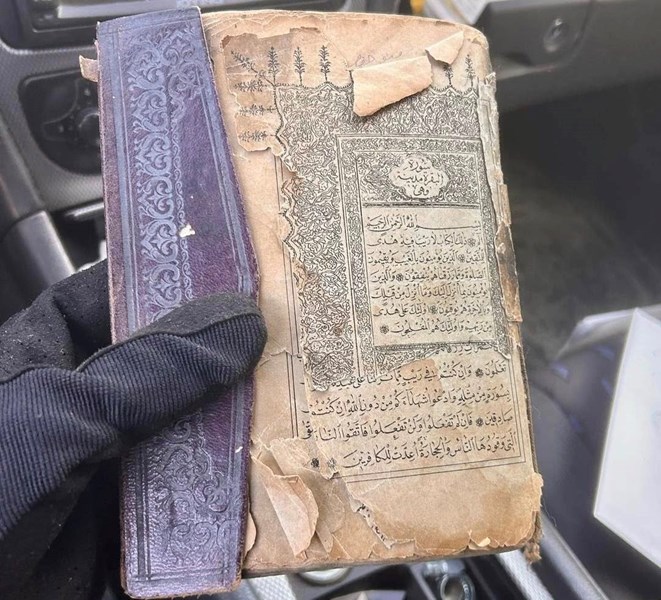 سورة
البقرة مدنية
وهي
بسم الله الرحمن الرحيم
ذلك الكتاب لا ريب فيه هدى
للمتقين الذين يؤمنون بالغيب ويقيمون
الصلوة ومما رزقناهم ينفقون والذين
يؤمنون بما انزل اليك وما انزل من قبلك
وبالاخرة هم يوقنون اولئك على هدى
من ربهم واولئك هم المفلحون
تعلمون وان كنتم في ريب مما نزلنا على عبدنا
بسورة من مثله وادعوا شهداءكم من دون الله ان كنتم
صادقين فان لم تفعلوا ولن تفعلوا فاتقوا النار
التي وقودها الناس والحجارة اعدت للكافرين